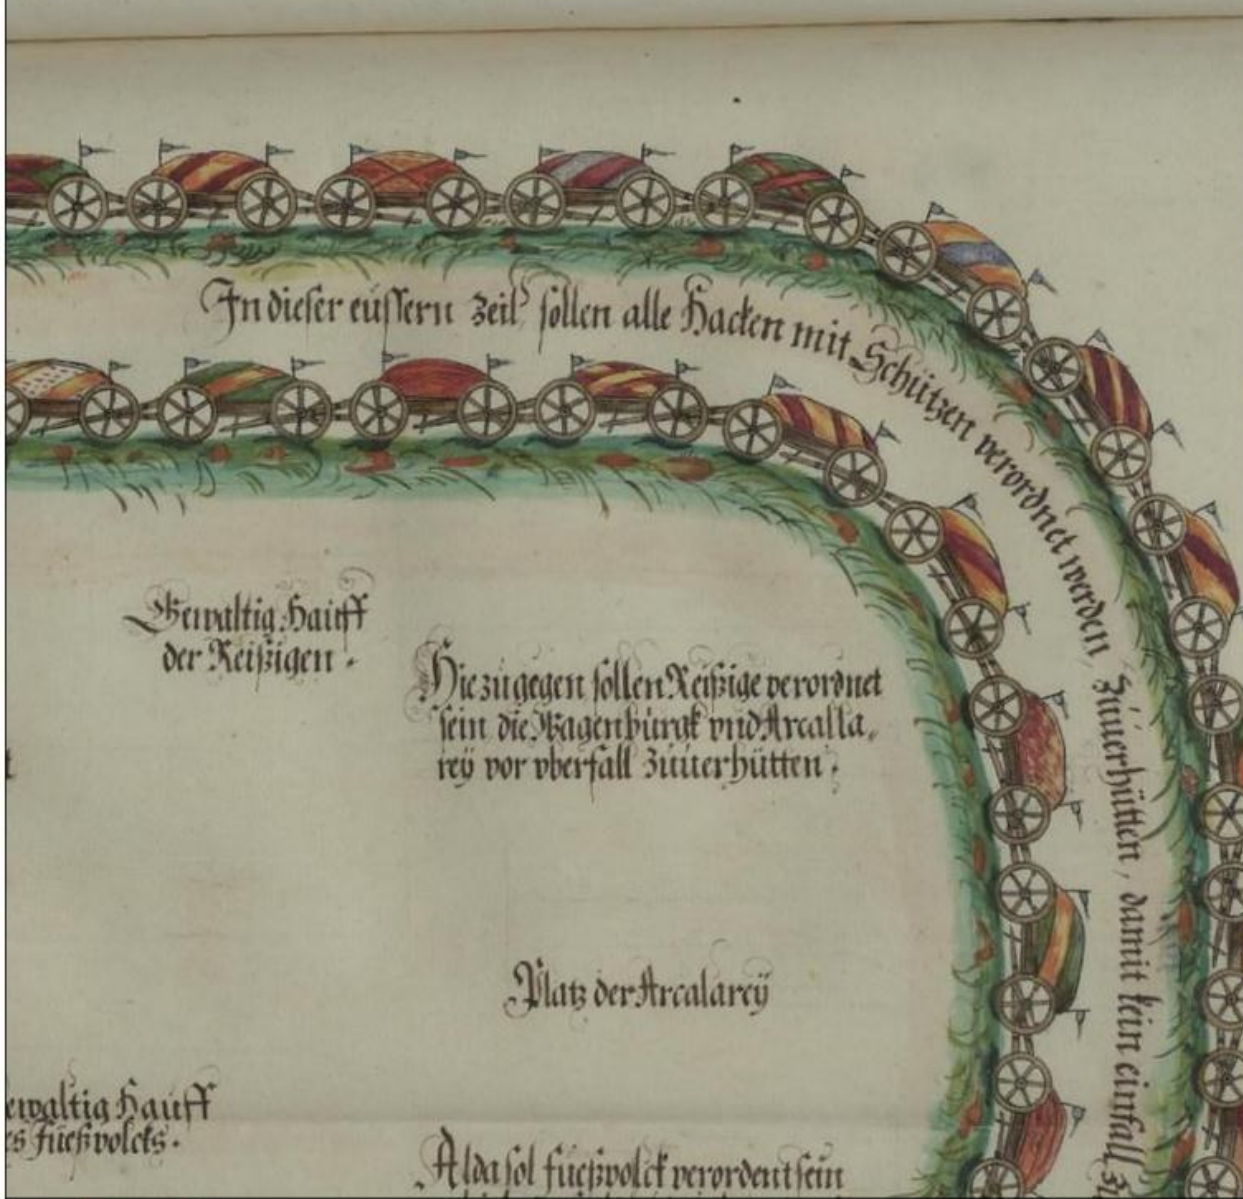 In dieser eussern Zeil sollen alle Hacken mit Schützen verordnet werden, Zuuerhütten, damit kein einfall
Gewaltig Hauff
der Reißigen.
Hie zugegen sollen Reißige verordnet
sein die Wagenburgk vnd Arcalla,
rey vor vberfall Zuuerhütten.
Platz der Arcalarey
ewaltig Hauff
es fueßvolcks.
Alda sol fueßvolck verordent sein